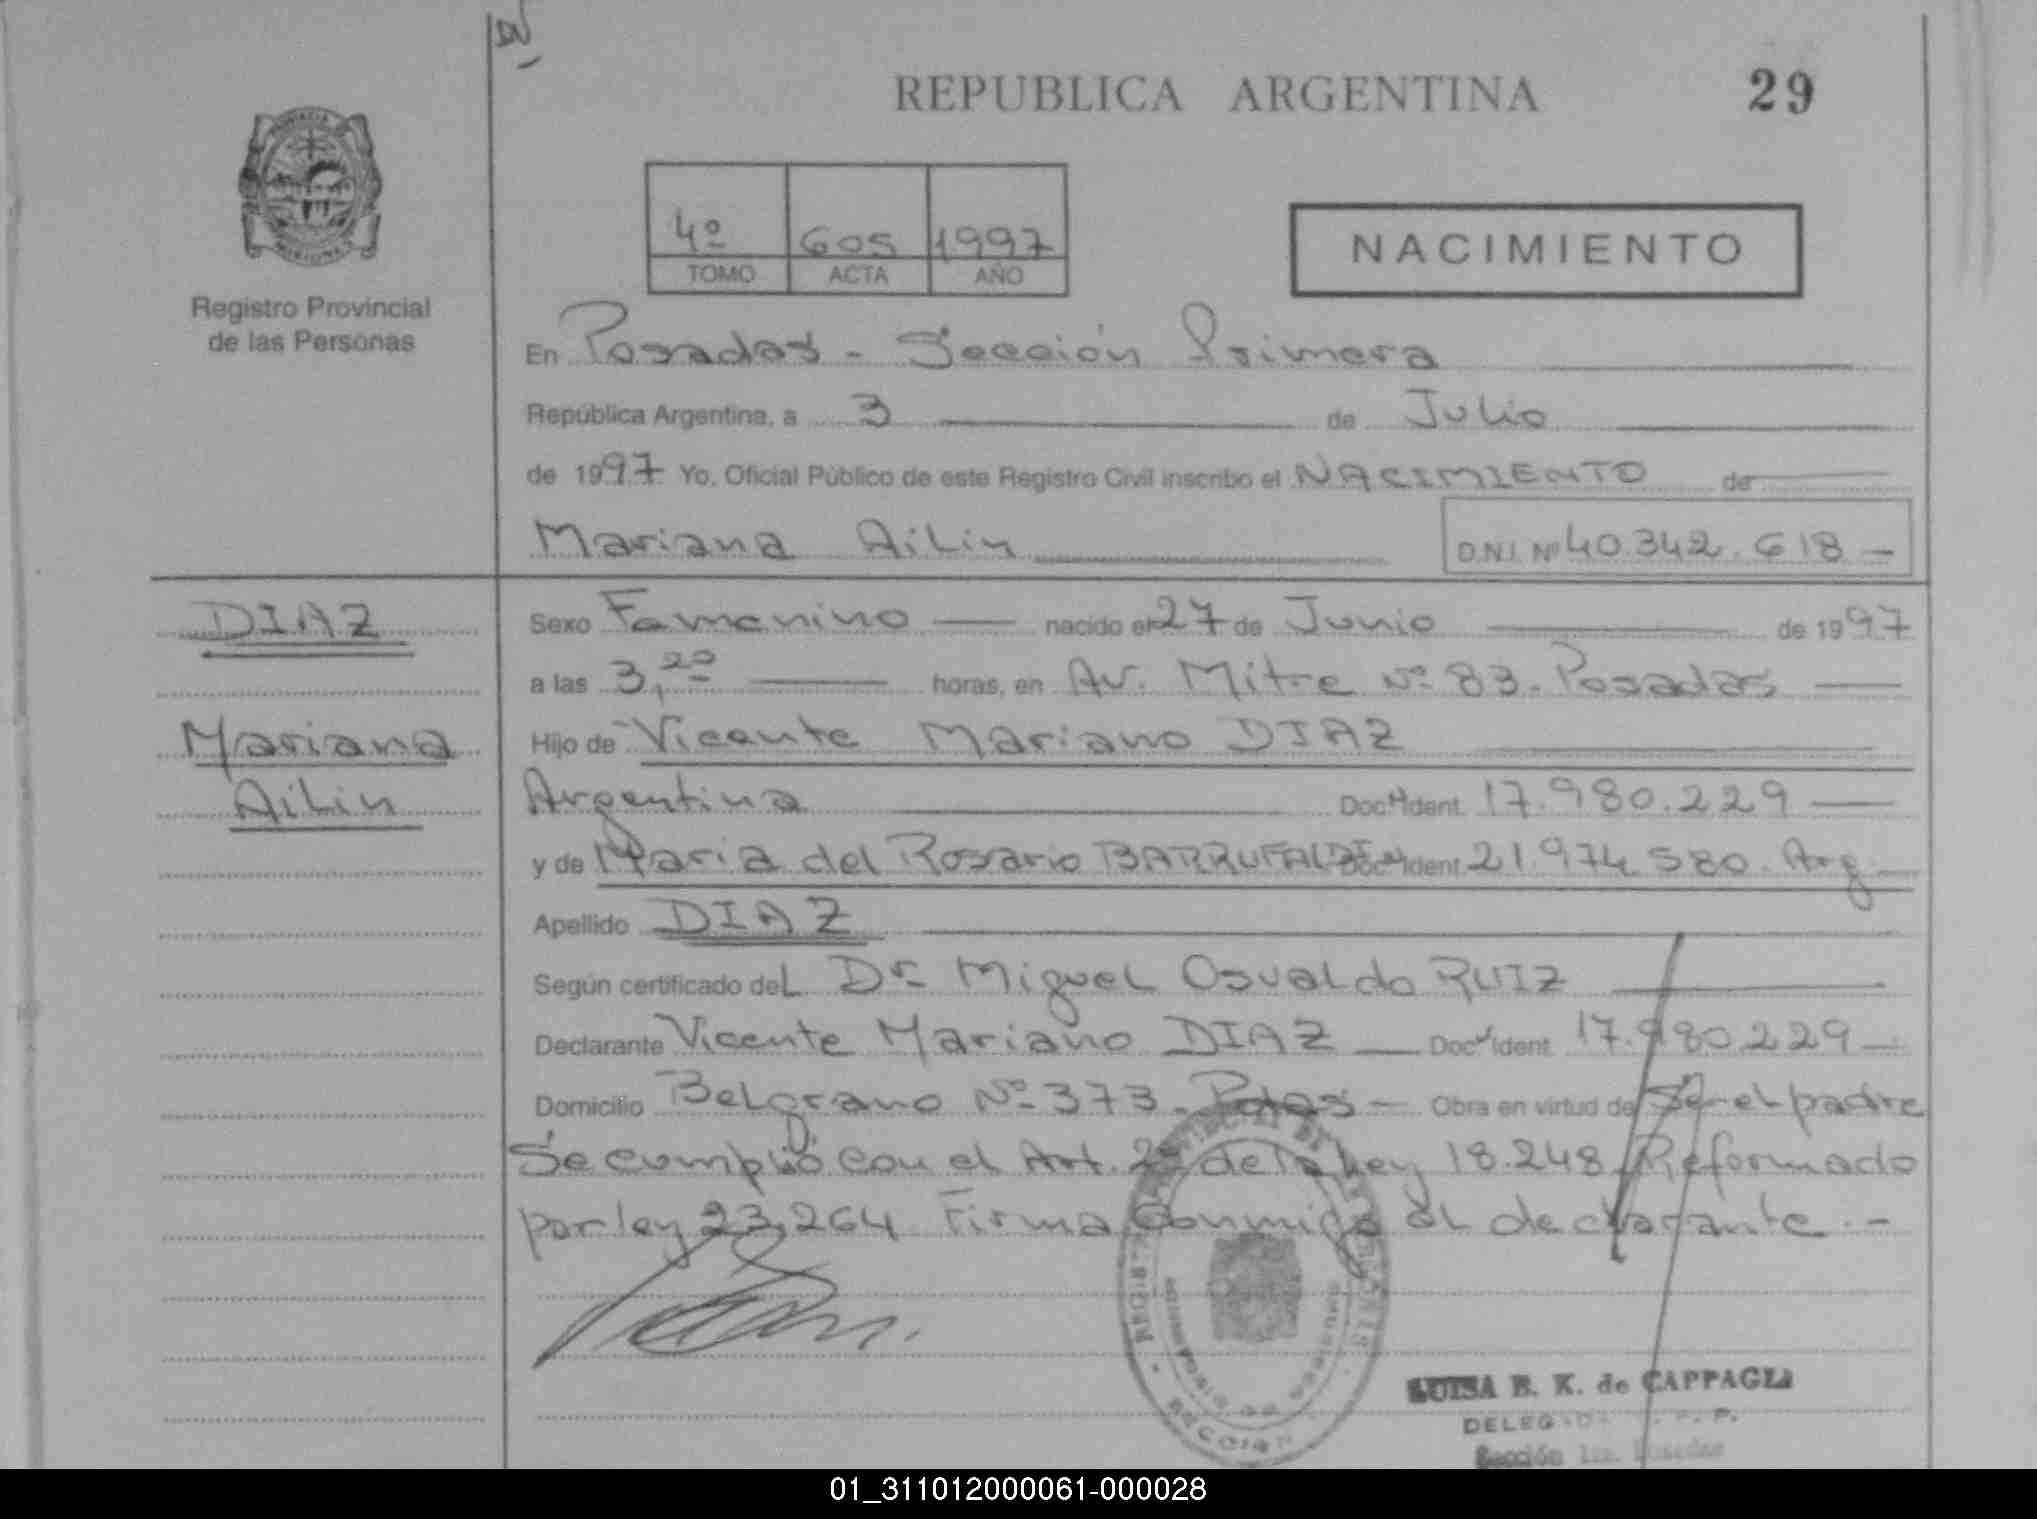 REPUBLICA ARGENTINA 29
4º 605 1997
TOMO ACTA AÑO
NACIMIENTO
Registro Provincial
de las Personas
En Posadas - Sección Primera
República Argentina, a 3 de Julio
de 1997 Yo, Oficial Público de este Registro Civil inscribo el NACIMIENTO de
Mariana Ailin D.N.I. Nº 40.342.618 -
DIAZ
Mariana
Ailin
Sexo Femenino nacido el 27 de Junio de 1997
a las 3,20 horas, en Av. Mitre Nº 83. Posadas
Hijo de Vicente Mariano DIAZ
Argentina Doc. Ident. 17.980.229
y de Maria del Rosario BARRUFALDI Doc. Ident. 21.974.580. Arg
Apellido DIAZ
Según certificado del Dr. Miguel Osvaldo RUIZ
Declarante Vicente Mariano DIAZ Doc. Ident. 17.980.229
Domicilio Belgrano Nº 373. Pdas - Obra en virtud de Ser el padre
Se cumplió con el Art. 2º de la Ley 18.248 Reformado
por ley 23,264 Firma conmigo el declarante. -
LUISA B. K. de CAPPAGLI
SECCION
Sección 1ra. Posadas
01_311012000061-000028